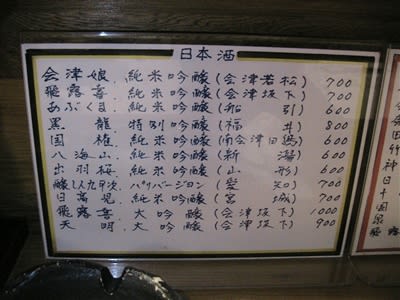 日本酒
会津娘 純米吟醸(会津若松) 700
飛露喜 純米吟醸(会津坂下) 700
あぶくま 純米吟醸(船引) 600
黒龍 特別吟醸(福井) 800
国権 純米吟醸(南会津田島) 600
八海山 純米吟醸(新潟) 600
出羽桜 純米吟醸(山形) 600
醸し人九平次 パリバージョン(愛知) 700
日高見 純米吟醸(宮城) 700
飛露喜 大吟醸(会津坂下) 1000
天明 大吟醸(会津坂下) 900